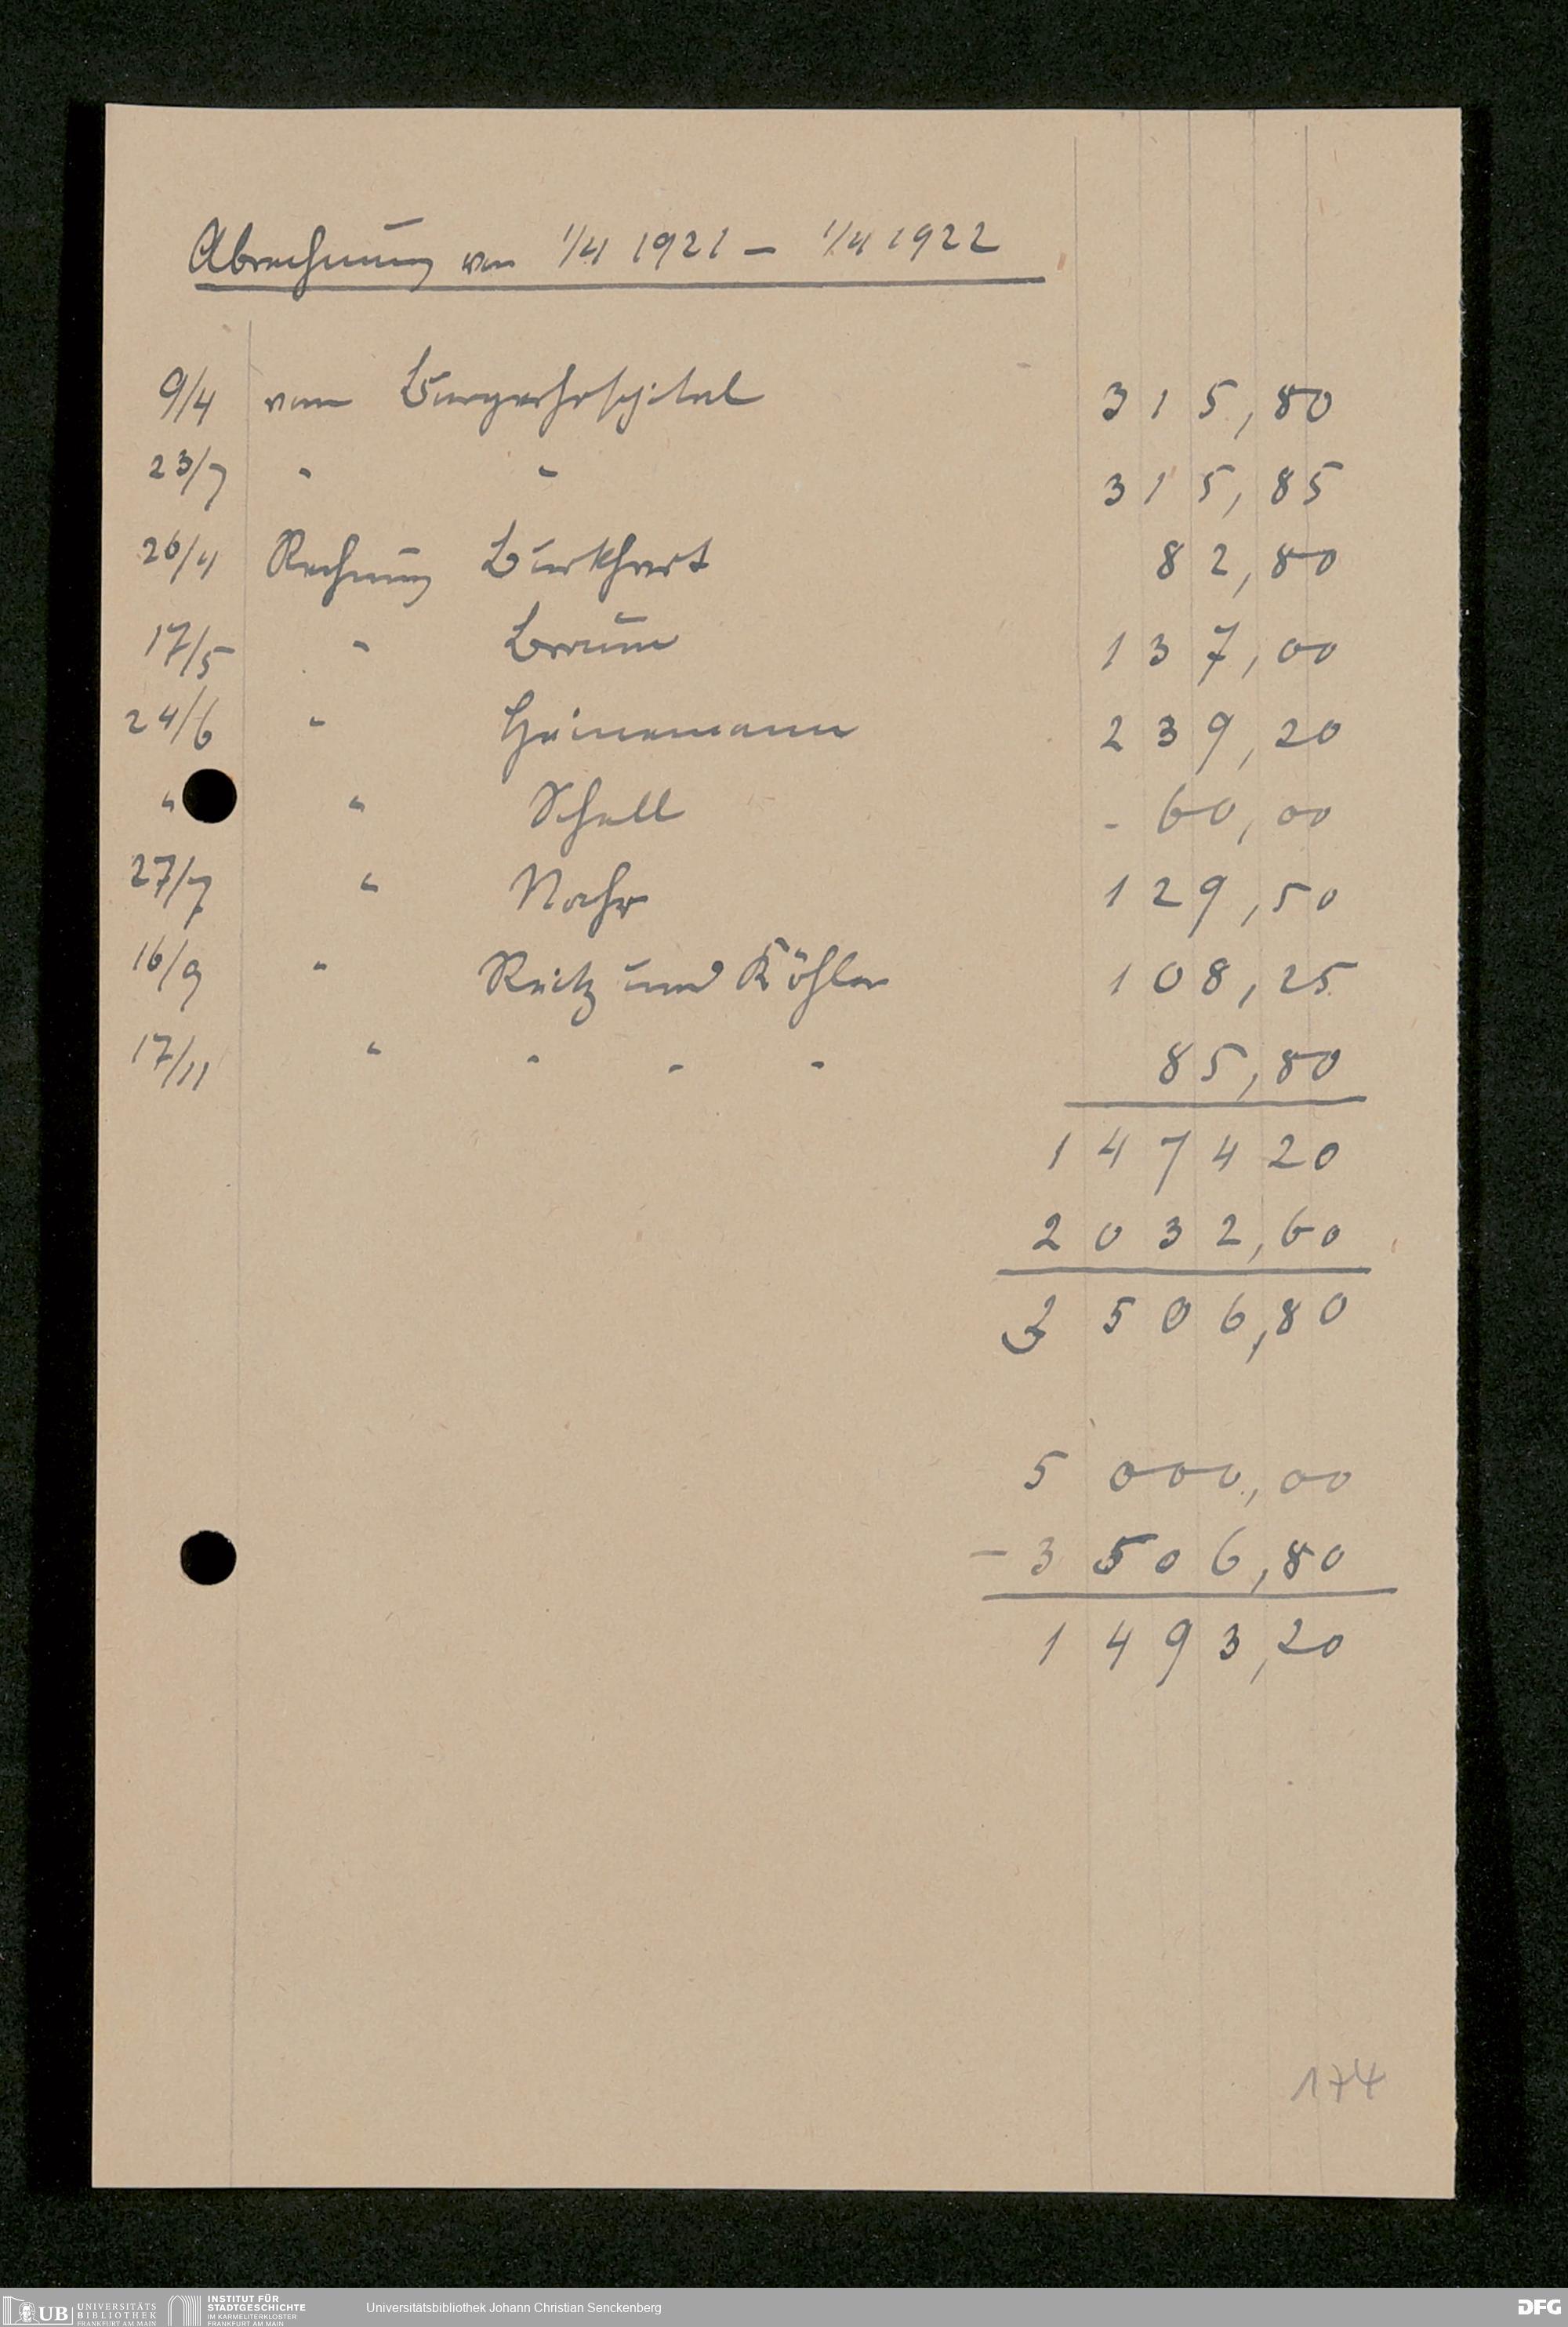 Abrechnung von 1/4 1921 – 1/4 1922
9/4 vom Bürgerhospital 315,80
23/7 " " 315,85
26/4 Rechnung Burkhart 82,80
17/5 " Braun 137,00
24/6 " Heinemann 239,20
" " Schell - 60,00
27/7 " Nohr 129,50
16/9 " Reitz und Köhler 108,25
17/11 " " " " 85,80
1474 20
2032,60
3506,80
5000,00
– 3506,80
1493,20
174
UB UNIVERSITÄTS BIBLIOTHEK FRANKFURT AM MAIN
INSTITUT FÜR STADTGESCHICHTE IM KARMELITERKLOSTER FRANKFURT AM MAIN
Universitätsbibliothek Johann Christian Senckenberg
DFG